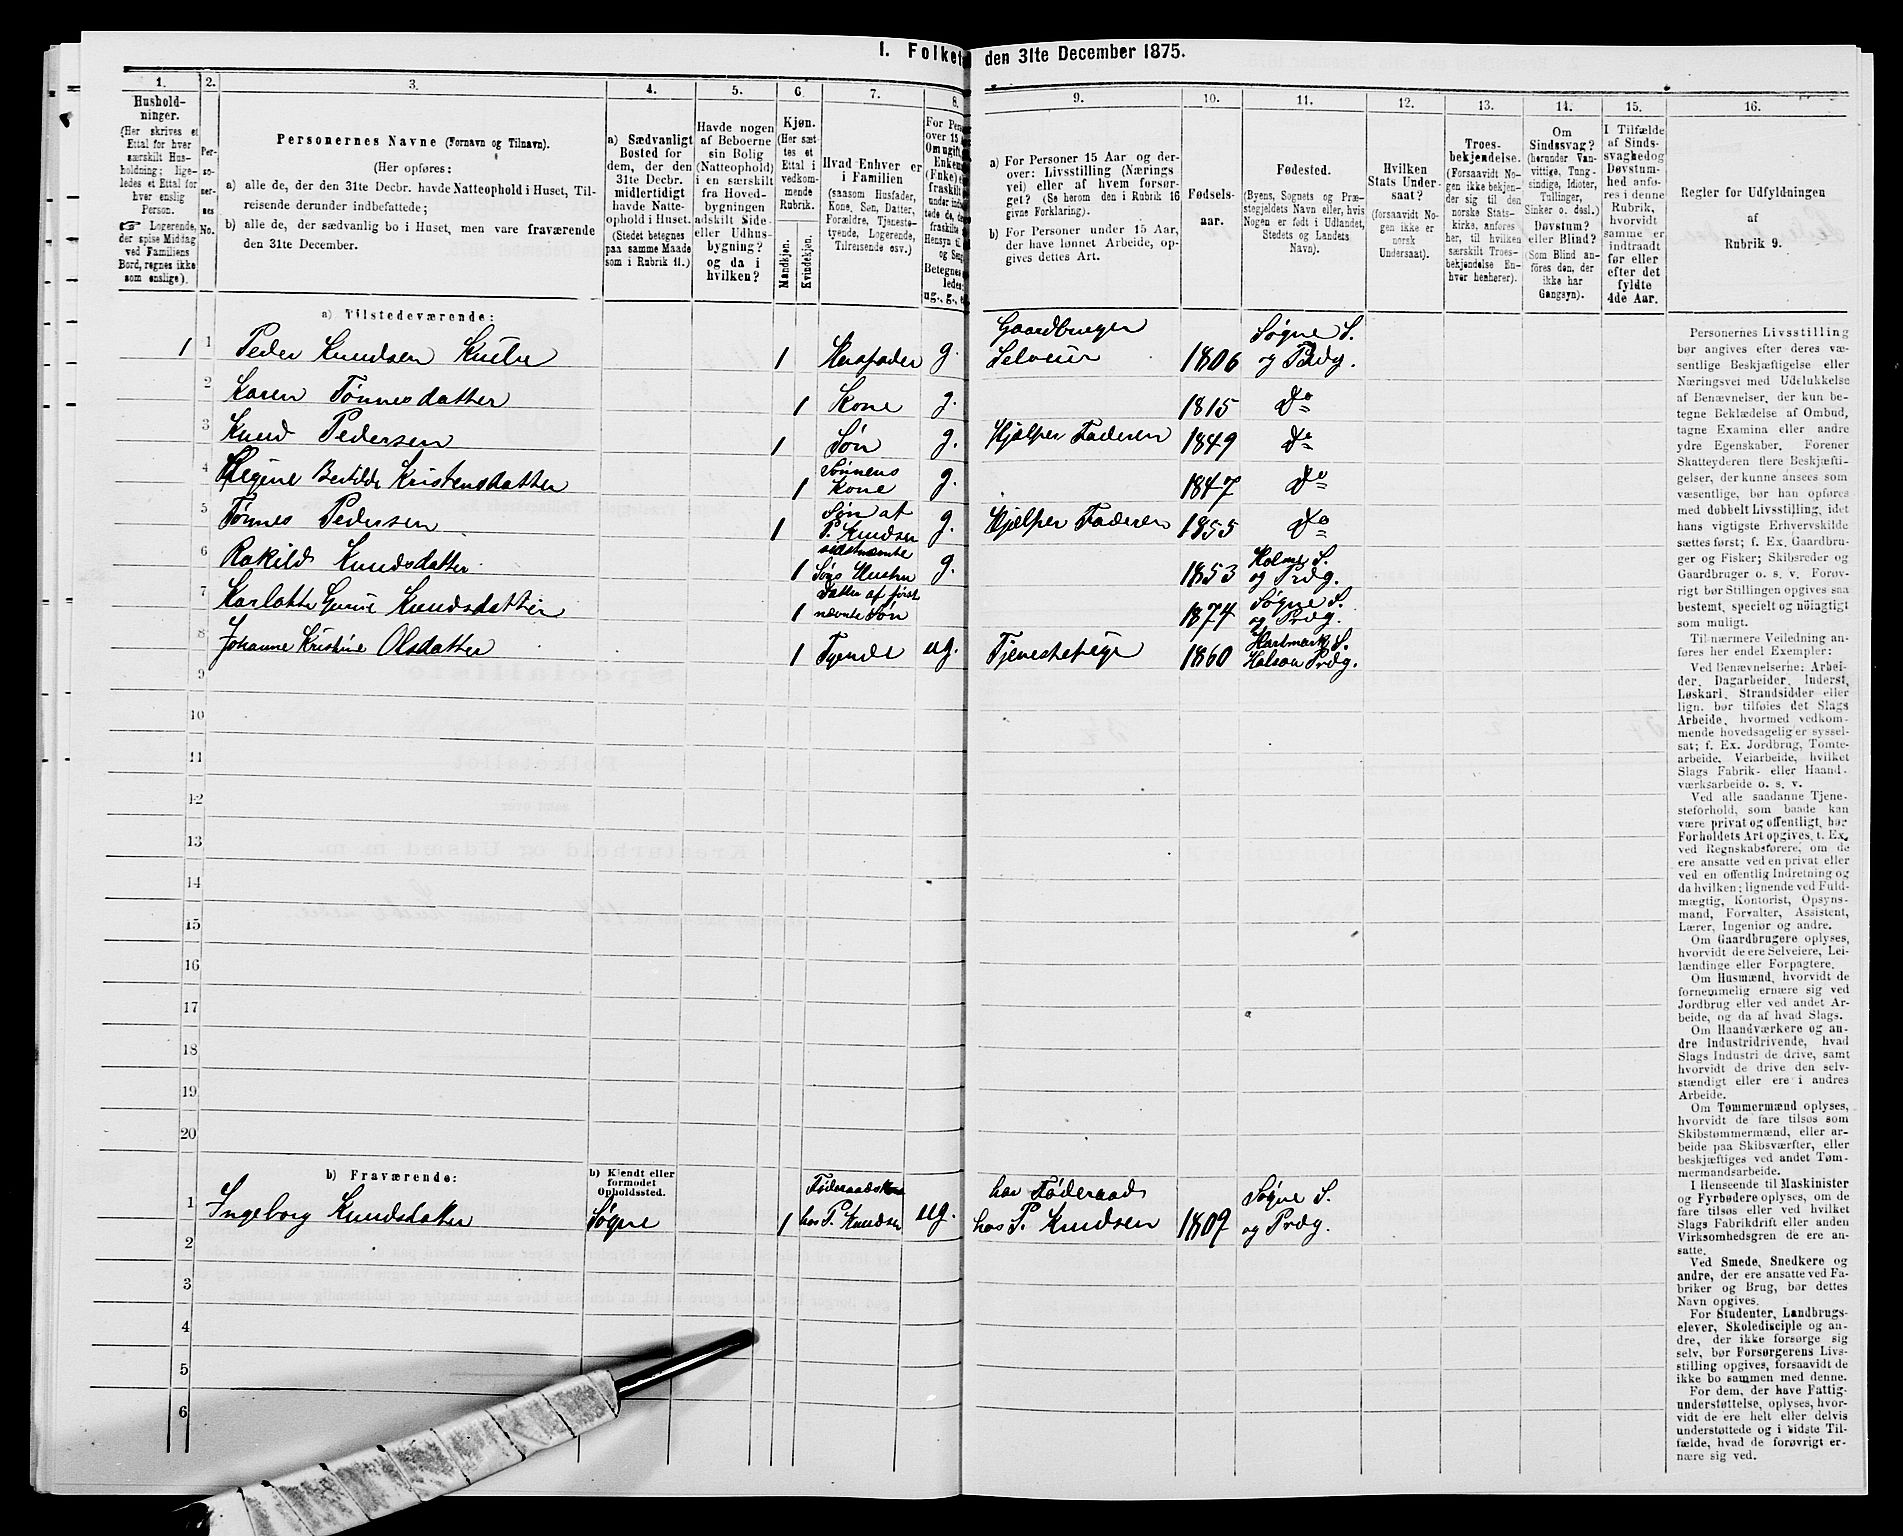 I. Folket
den 31te December 1875.
1.
2.
3.
4.
5.
6.
7.
8.
9.
10.
11.
12.
13.
14.
15.
16.
Hushold-
ninger.
(Her skrives et
Ettal for hver
særskilt Hus-
holdning; lige-
ledes et Ettal for
hver enslig
Person.
☞ Logerende,
der spise Middag
ved Familiens
Bord, regnes ikke
som enslige).
Per-
so-
ner-
nes
No.
Personernes Navne (Fornavn og Tilnavn).
(Her opføres:
a) alle de, der den 31te Decbr. havde Natteophold i Huset, Til-
reisende derunder indbefattede;
b) alle de, der sædvanlig bo i Huset, men vare fraværende
den 31te December.
a) Sædvanligt
Bosted for
dem, der den
31te Decbr.
midlertidigt
havde Natte-
ophold i Huset.
(Stedet betegnes
paa samme Maade
som i Rubrik 11.)
Havde nogen
af Beboerne
sin Bolig
(Natteophold)
i en særskilt
fra Hoved-
bygningen
adskilt Side-
eller Udhus-
bygning?
og da i
hvilken?
Kjøn.
(Her sæt-
tes et
Ettal i
vedkom-
mende
Rubrik.
Mandkjøn.
Kvindekjøn.
Hvad Enhver er
i Familien
(saasom Husfader,
Kone, Søn, Datter,
Forældre, Tjeneste-
tyende, Logerende,
Tilreisende osv.)
For Pers
over 15
Om ugift
Enkem
(Enke) e
fraskilt
under inde
tede de, de
fraskilte
Hensyn til
og Sen
Betegnes
ledes:
ug., g., e
a) For Personer 15 Aar og der-
over: Livsstilling (Nærings
vei) eller af hvem forsør-
get? (Se herom den i Rubrik 16
givne Forklaring).
b) For Personer under 15 Aar,
der have lønnet Arbeide, op-
gives dettes Art.
Fødsels-
aar.
Fødested.
(Byens, Sognets og Præ-
stegjeldets Navn eller, hvis
Nogen er født i Udlandet,
Stedets og Landets
Navn).
Hvilken
Stats Under-
saat?
(forsaavidt No-
gen ikke er
norsk
Undersaat).
Troes-
bekjendelse.
(Forsaavidt No-
gen ikke bekjen-
der sig til den
norske Stats-
kirke, anføres
her, til hvilken
særskilt Troes-
bekjendelse En-
hver henhører).
Om
Sindssvag?
(herunder Van-
vittige, Tung-
sindige, Idioter,
Tullinger,
Sinker o. desl.)
Døvstum?
eller Blind?
(Som Blind an-
føres den, der
ikke har
Gangsyn).
I Tilfælde
af Sinds-
svaghed og
Døvstum-
hed anfø-
res i denne
Rubrik,
hvorvidt
samme er
indtraadt
før eller
efter det
fyldte
4de Aar.
Regler for Udfyldningen
af
Rubrik 9.
a) Tilstedeværende:
1 1 Peder Knudsen 1 Husfader g. Gaardbruger Selveier 1806 Søgne S. og Prdg.
2 Karen Tønnesdatter 1 Kone g. 1815 Do
3 Knud Pedersen 1 Søn g. Hjælper Faderen 1849 Do
4 Regine Bertilde Kristensdatter 1 Sønnens Kone g. 1847 Do
5 Tønnes Pedersen 1 Søn af P. Knudsen g. Hjelper Faderen 1855 Do
6 Rakild Knudsdatter 1 sidstnævnte Søns Hustru g. 1853 Holme S. og Prdg.
7 Karlotte Gurine Knudsdatter 1 Datter af først nævnte Søn 1874 Søgne S. og Prdg.
8 Johanne Kristine Olsdatter 1 Tyende ug. Tjenestepige 1860 Hartmark S. Halsaa Prdg.
9
10
11
12
13
14
15
16
17
18
19
20
b) Fraværende:
b) Kjendt eller
formodet
Opholdssted.
1 Ingeborg Knudsdatter Søgne 1 Føderaadskone hos P. Knudsen ug. har Føderaad hos P. Knudsen 1809 Søgne S. og Prdg.
2
3
4
5
6
Personernes Livsstilling
bør angives efter deres væ-
sentlige Beskjæftigelse eller
Næringsvei med Udelukkelse
af Benævnelser, der kun be-
tegne Beklædelse af Ombud,
tagne Examina eller andre
ydre Egenskaber. Forener
Skatteyderen flere Beskjæfti-
gelser, der kunne ansees som
væsentlige, bør han opføres
med dobbelt Livsstilling, idet
hans vigtigste Erhvervskilde
sættes først; f. Ex. Gaardbru-
ger og Fisker; Skibsreder og
Gaardbruger o. s. v. Forøv-
rigt bør Stillingen opgives saa
bestemt, specielt og nøiagtigt
som muligt.
Til nærmere Veiledning an-
føres her endel Exempler:
Ved Benævnelserne: Arbei-
der, Dagarbeider, Inderst,
Løskarl, Strandsidder eller
lign. bør tilføies det Slags
Arbeide, hvormed vedkom-
mende hovedsagelig er syssel-
sat; f. Ex. Jordbrug, Tomte-
arbeide, Veiarbeide, hvilket
Slags Fabrik- eller Haand-
værksarbeide o. s. v.
Ved alle saadanne Tjene-
steforhold, som baade kan
være privat og offentligt, bør
Forholdets Art opgives, t. Ex.
ved Regnskabsførere, om de
ere ansatte ved en privat eller
ved en offentlig Indretning og
da hvilken; lignende ved Fuld-
mægtig, Kontorist, Opsyns-
mand, Forvalter, Assistent,
Lærer, Ingeniør og andre.
Om Gaardbrugere oplyses,
hvorvidt de ere Selveiere, Lei-
lændinge eller Forpagtere.
Om Husmænd, hvorvidt de
fornemmelig ernære sig ved
Jordbrug eller ved andet Ar-
beide, og da af hvad Slags.
Om Haandværkere og an-
dre Industridrivende, hvad
Slags Industri de drive, samt
hvorvidt de drive den selv-
stændigt eller ere i andres
Arbeide.
Om Tømmermænd oplyses,
hvorvidt de fare tilsøs som
Skibstømmermænd, eller ar-
beide paa Skibsværfter, eller
beskjæftiges ved andet Tøm-
mermandsarbeide.
I Henseende til Maskinister
og Fyrbødere oplyses, om de
fare tilsøs eller ved hvilket
Slags Fabrikdrift eller anden
Virksomhedsgren de ere an-
satte.
Ved Smede, Snedkere og
andre, der ere ansatte ved Fa-
briker og Brug, bør dettes
Navn opgives.
For Studenter, Landbrugs-
elever, Skoledisciple og an-
dre, der ikke forsørge sig
selv, bør Forsørgerens Livs-
stilling opgives, forsaavidt de
ikke bo sammen med denne.
For dem, der have Fattig-
understøttelse, oplyses, hvor-
vidt de ere helt eller delvis
understøttede og i sidste Til-
fælde, hvad de forøvrigt er-
nære sig ved.